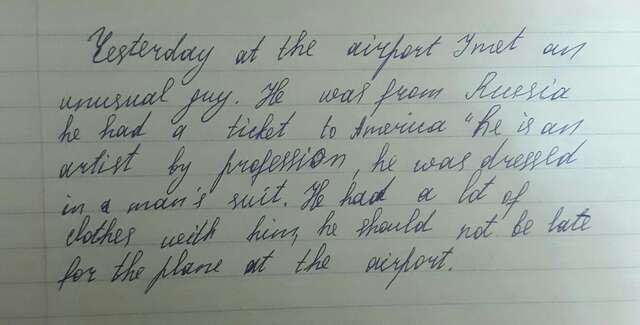 Yesterday at the airport I met an
unusual guy. He was from Russia
he had a ticket to America "he is an
artist by profession, he was dressed
in a man's suit. He had a lot of
clothes with him, he should not be late
for the plane at the airport.